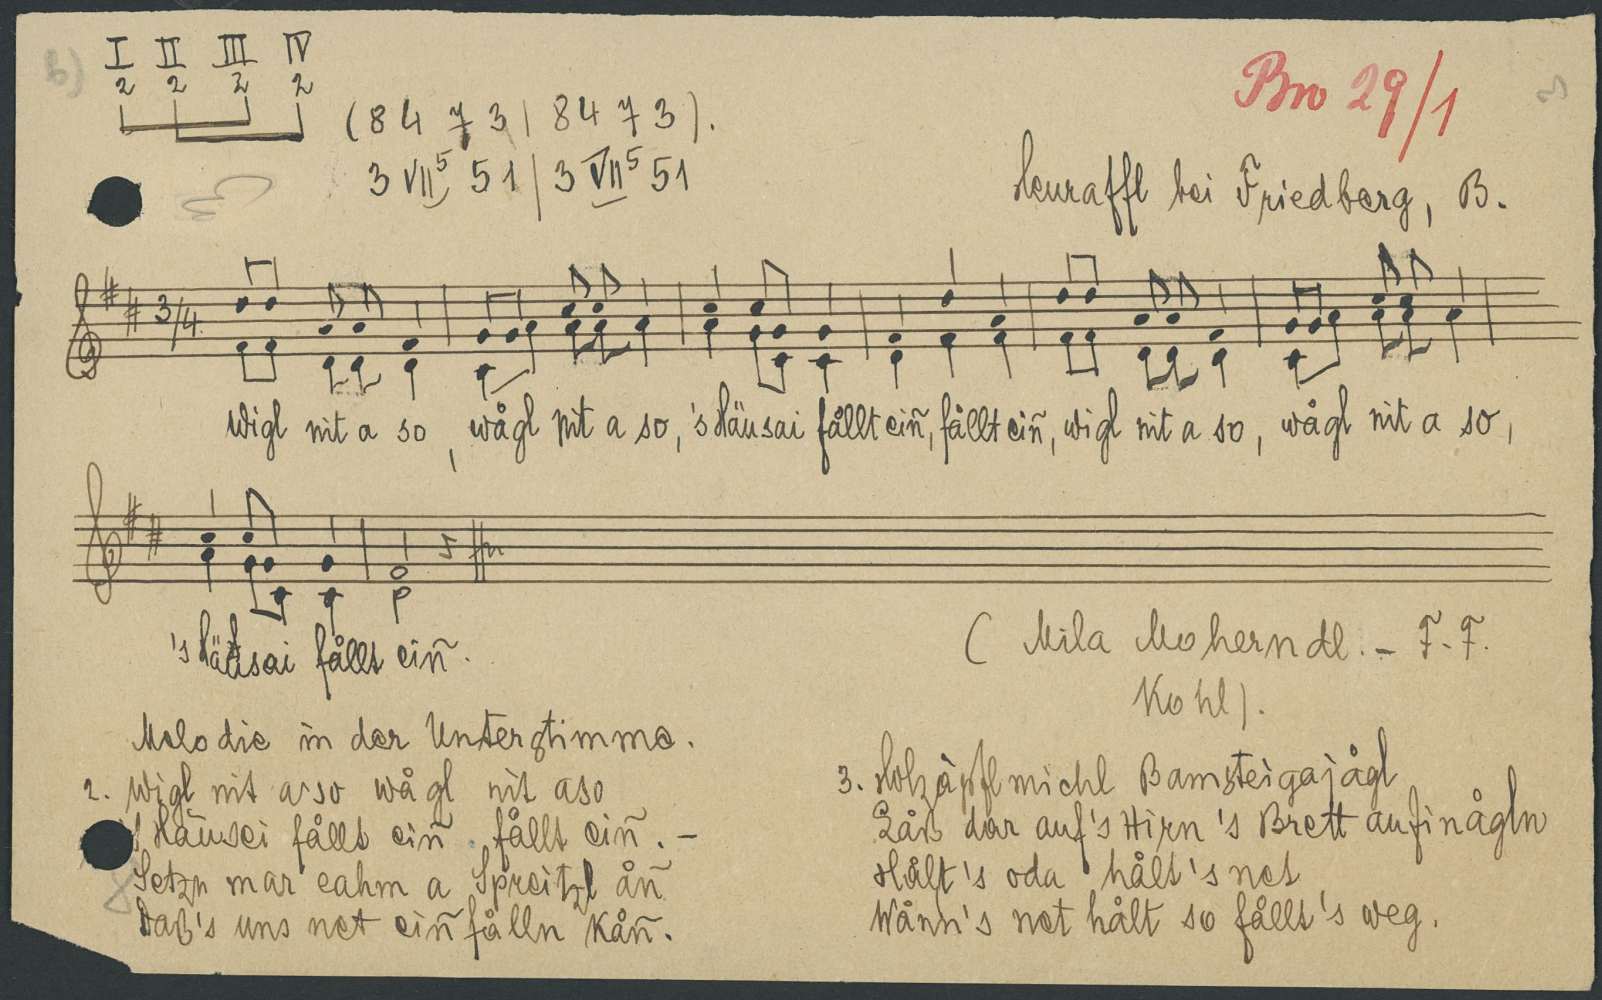 b)
I II III IV
2 2 2 2
(8 4 7 3 | 8 4 7 3).
3 VII⁵ 5 1 | 3 VII⁵ 5 1
Bro 29/1
Heuraffl bei Friedberg, B.
3/4
Wigl nit a so, wågl nit a so, 's Häusai fållt eiñ, fållt eiñ, wigl nit a so, wågl nit a so,
's Häusai fållt eiñ.
( Mila Moherndl. – F. F.
Kohl).
Melodie in der Unterstimme.
2. Wigl nit a so wågl nit aso
's Häusei fållt eiñ, fållt eiñ. –
Setzn mar eahm a Spreitzl åñ
Daß's uns net eiñfålln kåñ.
3. Holzäpflmichl Bamsteigajågl
Låß dar auf's Hirn 's Brett aufinågln
Hålt's oda hålt's net
Wånn's net hålt so fållt's weg.